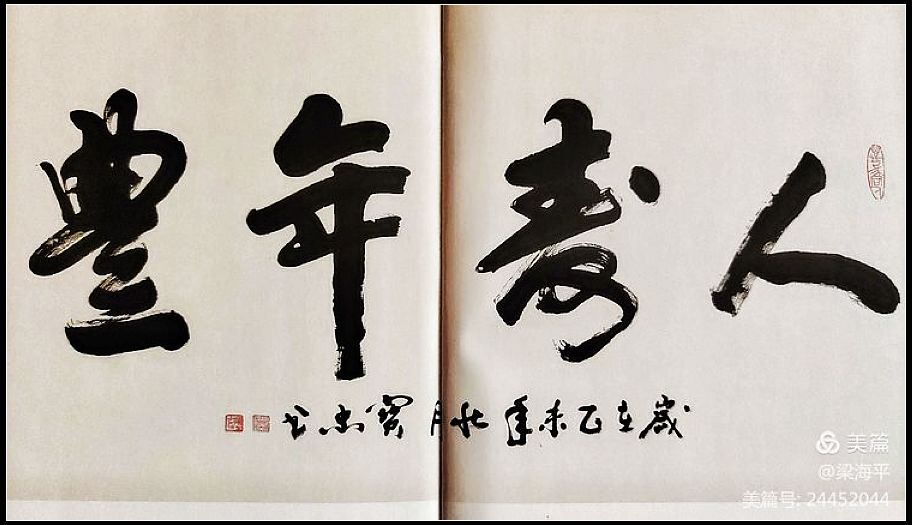 人壽年豐
歲在己未年秋月寶忠书
美篇
@梁海平
美篇号: 24452044